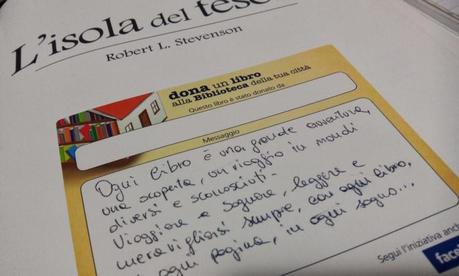 L'isola del tes
Robert L. Stevenson
dona un libro
alla Biblioteca della tua città
Questo libro è stato donato da
Messaggio
Ogni libro è una grande avventura,
una scoperta, un viaggio in mondi
diversi e sconosciuti.
Viaggiare e sognare, leggere e
meravigliarsi sempre, con ogni libro,
in ogni pagina, in ogni sogno...
Segui l'iniziativa anch
faceb